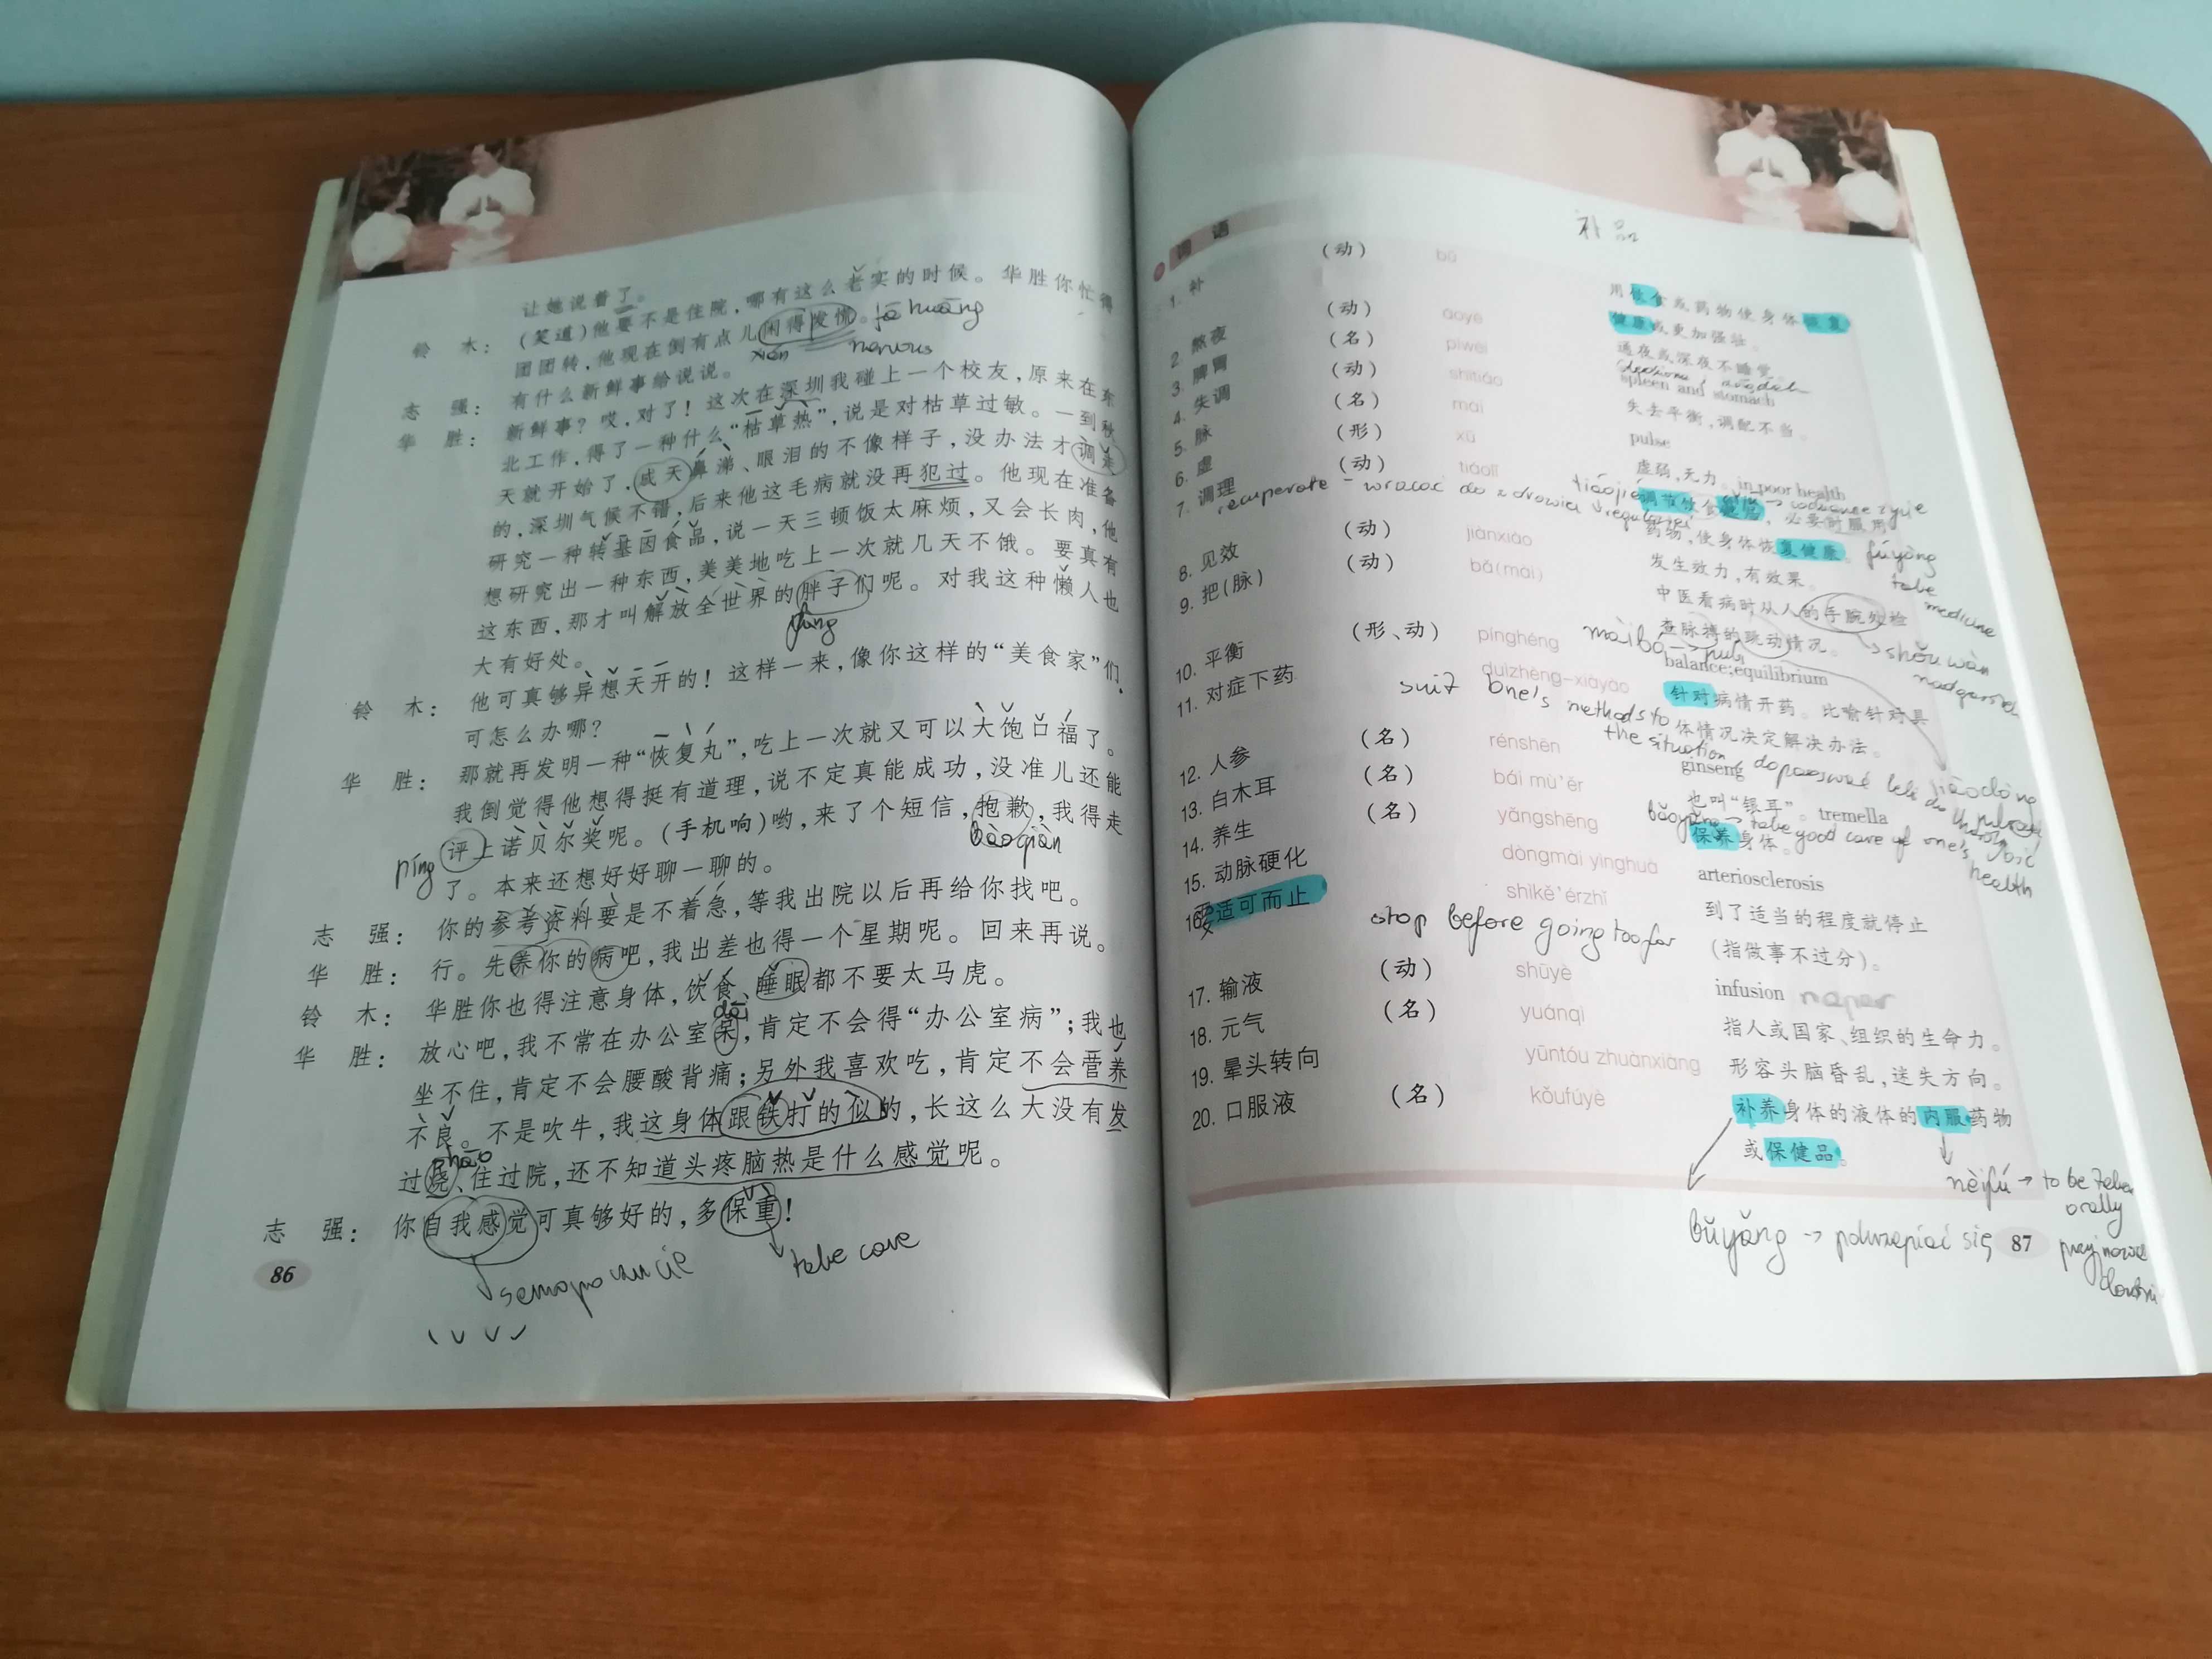 让她说着了。
铃 木： (笑道)他要不是住院，哪有这么老实的时候。华胜你忙得
团团转，他现在倒有点儿闲得发慌。 fā huāng
xián nervous
有什么新鲜事给说说。
志 强： 新鲜事？哎，对了！这次在深圳我碰上一个校友，原来在东
华 胜： 北工作，得了一种什么“枯草热”，说是对枯草过敏。一到秋
天就开始了，成天鼻涕、眼泪的不像样子，没办法才调走
的，深圳气候不错，后来他这毛病就没再犯过。他现在准备
研究一种转基因食品，说一天三顿饭太麻烦，又会长肉，他
想研究出一种东西，美美地吃上一次就几天不饿。要真有
这东西，那才叫解放全世界的胖子们呢。对我这种懒人也
大有好处。
铃 木： 他可真够异想天开的！这样一来，像你这样的“美食家”们
可怎么办哪？
华 胜： 那就再发明一种“恢复丸”，吃上一次就又可以大饱口福了。
我倒觉得他想得挺有道理，说不定真能成功，没准儿还能
píng 评上诺贝尔奖呢。(手机响)哟，来了个短信，抱歉，我得走
bàoqiàn
了。本来还想好好聊一聊的。
志 强： 你的参考资料要是不着急，等我出院以后再给你找吧。
华 胜： 行。先养你的病吧，我出差也得一个星期呢。回来再说。
铃 木： 华胜你也得注意身体，饮食、睡眠都不要太马虎。
dāi
华 胜： 放心吧，我不常在办公室呆，肯定不会得“办公室病”；我也
坐不住，肯定不会腰酸背痛；另外我喜欢吃，肯定不会营养
不良。不是吹牛，我这身体跟铁打的似的，长这么大没有发
shāo
过烧、住过院，还不知道头疼脑热是什么感觉呢。
志 强： 你自我感觉可真够好的，多保重！
take care
86
词 语
补品
1. 补 (动) bǔ 用饮食或药物使身体恢复
健康或更加强壮。
2. 熬夜 (动) áoyè 通夜或深夜不睡觉。
3. 脾胃 (名) píwèi spleen and stomach
4. 失调 (动) shītiáo 失去平衡，调配不当。
5. 脉 (名) mài pulse
6. 虚 (形) xū 虚弱，无力。in poor health
7. 调理 (动) tiáolǐ 调节饮食起居，必要时服用
recuperate - wracać do zdrowia tiáojié
药物，使身体恢复健康。 fúyòng
take
medicine
8. 见效 (动) jiànxiào 发生效力，有效果。
9. 把(脉) (动) bǎ(mài) 中医看病时从人的手腕处检
查脉搏的跳动情况。
màibó → puls shǒuwàn
10. 平衡 (形、动) pínghéng balance; equilibrium
11. 对症下药 duìzhèng-xiàyào 针对病情开药。比喻针对具
体情况决定解决办法。
suit one's methods to
the situation
12. 人参 (名) rénshēn ginseng
13. 白木耳 (名) bái mù'ěr 也叫“银耳”。tremella
14. 养生 (名) yǎngshēng 保养身体。
bǎoyǎng → take good care of one's
health
15. 动脉硬化 dòngmài yìnghuà arteriosclerosis
16. 适可而止 shìkě'érzhǐ 到了适当的程度就停止
(指做事不过分)。
stop before going too far
17. 输液 (动) shūyè infusion
18. 元气 (名) yuánqì 指人或国家、组织的生命力。
19. 晕头转向 yūntóu zhuànxiàng 形容头脑昏乱，迷失方向。
20. 口服液 (名) kǒufúyè 补养身体的液体的内服药物
或保健品。
nèifú → to be taken
orally
bǔyǎng → pokrzepiać się
87